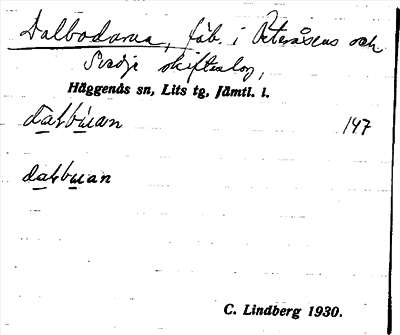 Dalbodarna, fäb. i Peteråsens och
Svedje skifteslag,
Häggenås sn, Lits tg, Jämtl. l.
dalbúan 147
dalbúan
C. Lindberg 1930.